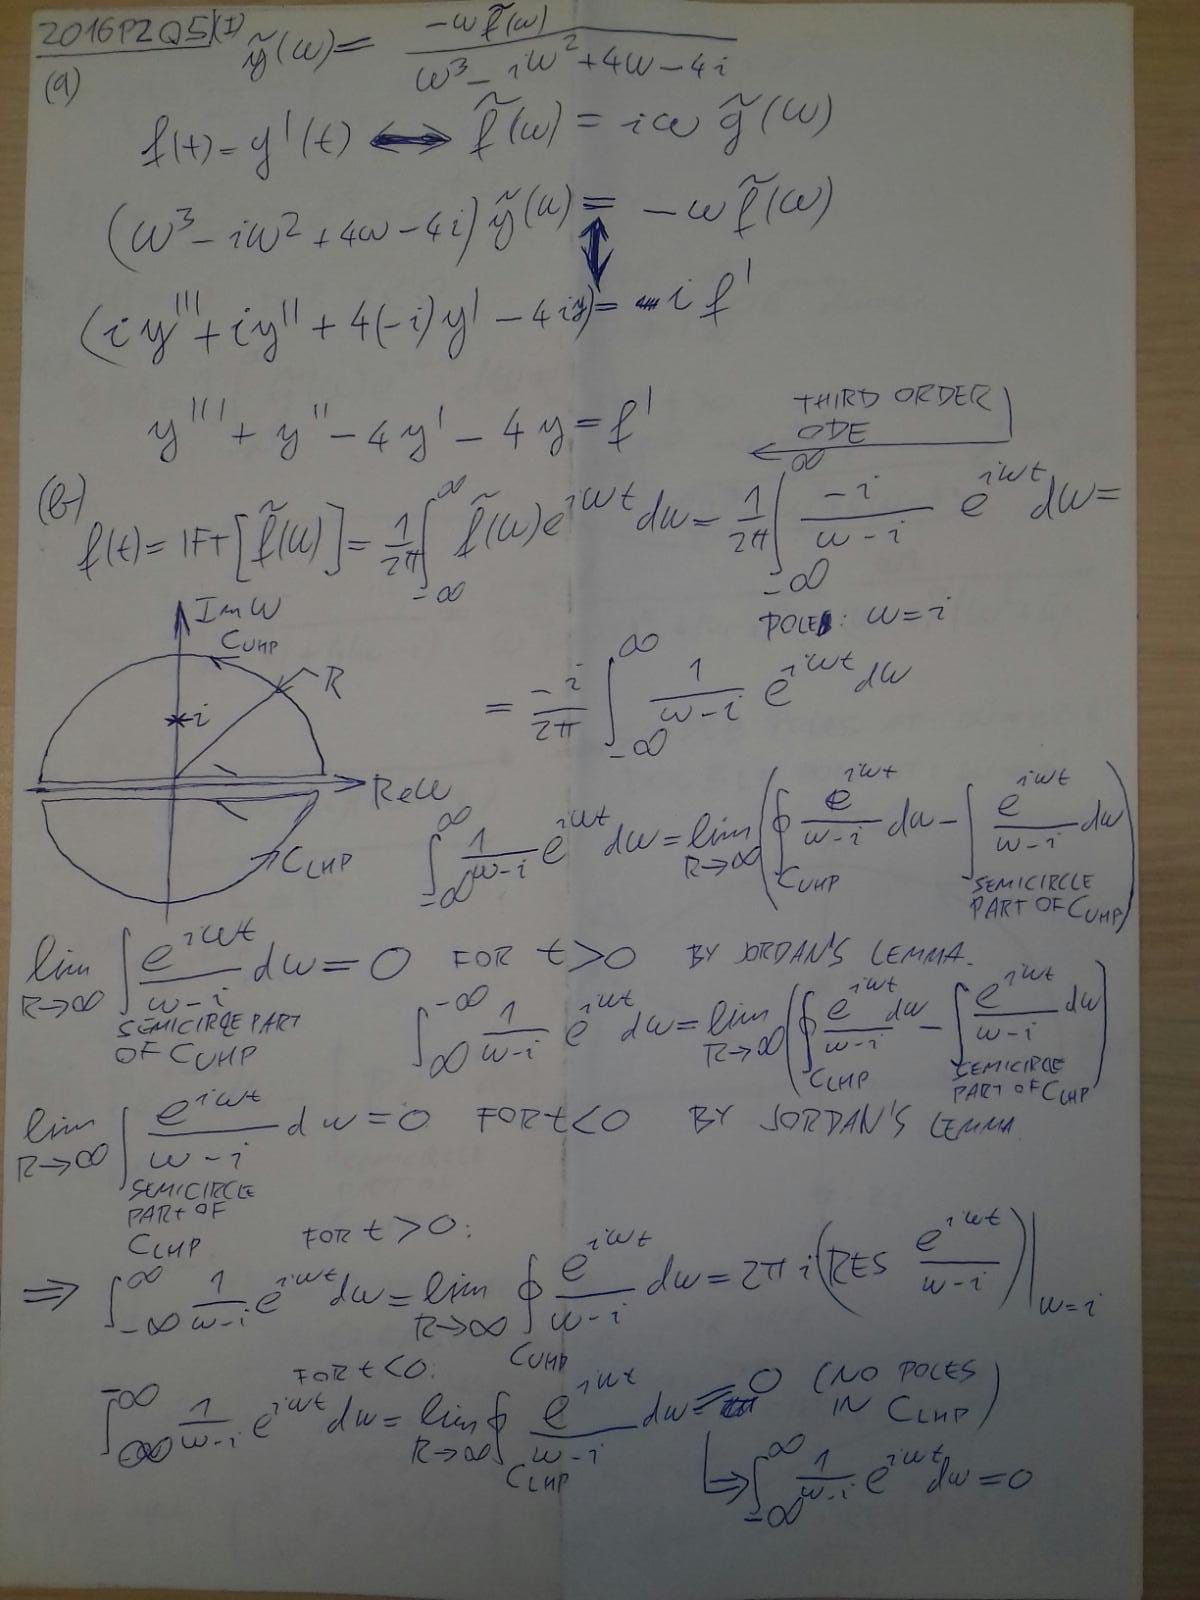 2016P2Q5(I) ỹ(ω) = -ω f̃(ω) / ω³ - iω² + 4ω - 4i
(a)
f(t) = y'(t) ⟷ f̃(ω) = iω g̃(ω)
(ω³ - iω² + 4ω - 4i) ỹ(ω) = -ω f̃(ω)
(i y''' + i y'' + 4(-i) y' - 4iy) = i f'
y''' + y'' - 4y' - 4y = f'
THIRD ORDER ODE
(b)
f(t) = IFT [f̃(ω)] = 1/2π ∫_{-∞}^{∞} f̃(ω) e^{iωt} dω = 1/2π ∫_{-∞}^{∞} -i/(ω-i) e^{iωt} dω =
POLE: ω = i
Im ω
C_UHP
R
i
Re ω
C_LHP
= -i/2π ∫_{-∞}^{∞} 1/(ω-i) e^{iωt} dω
∫_{-∞}^{∞} 1/(ω-i) e^{iωt} dω = lim_{R→∞} (∮_{C_UHP} e^{iωt}/(ω-i) dω - ∫_{SEMICIRCLE PART OF C_UHP} e^{iωt}/(ω-i) dω)
lim_{R→∞} ∫_{SEMICIRCLE PART OF C_UHP} e^{iωt}/(ω-i) dω = 0 FOR t>0 BY JORDAN'S LEMMA.
∫_{∞}^{-∞} 1/(ω-i) e^{iωt} dω = lim_{R→∞} (∮_{C_LHP} e^{iωt}/(ω-i) dω - ∫_{SEMICIRCLE PART OF C_LHP} e^{iωt}/(ω-i) dω)
lim_{R→∞} ∫_{SEMICIRCLE PART OF C_LHP} e^{iωt}/(ω-i) dω = 0 FOR t<0 BY JORDAN'S LEMMA.
FOR t>0:
⇒ ∫_{-∞}^{∞} 1/(ω-i) e^{iωt} dω = lim_{R→∞} ∮_{C_UHP} e^{iωt}/(ω-i) dω = 2πi (RES e^{iωt}/(ω-i))|_{ω=i}
FOR t<0:
∫_{∞}^{-∞} 1/(ω-i) e^{iωt} dω = lim_{R→∞} ∮_{C_LHP} e^{iωt}/(ω-i) dω = 0 (NO POLES IN C_LHP)
↳ ∫_{-∞}^{∞} 1/(ω-i) e^{iωt} dω = 0